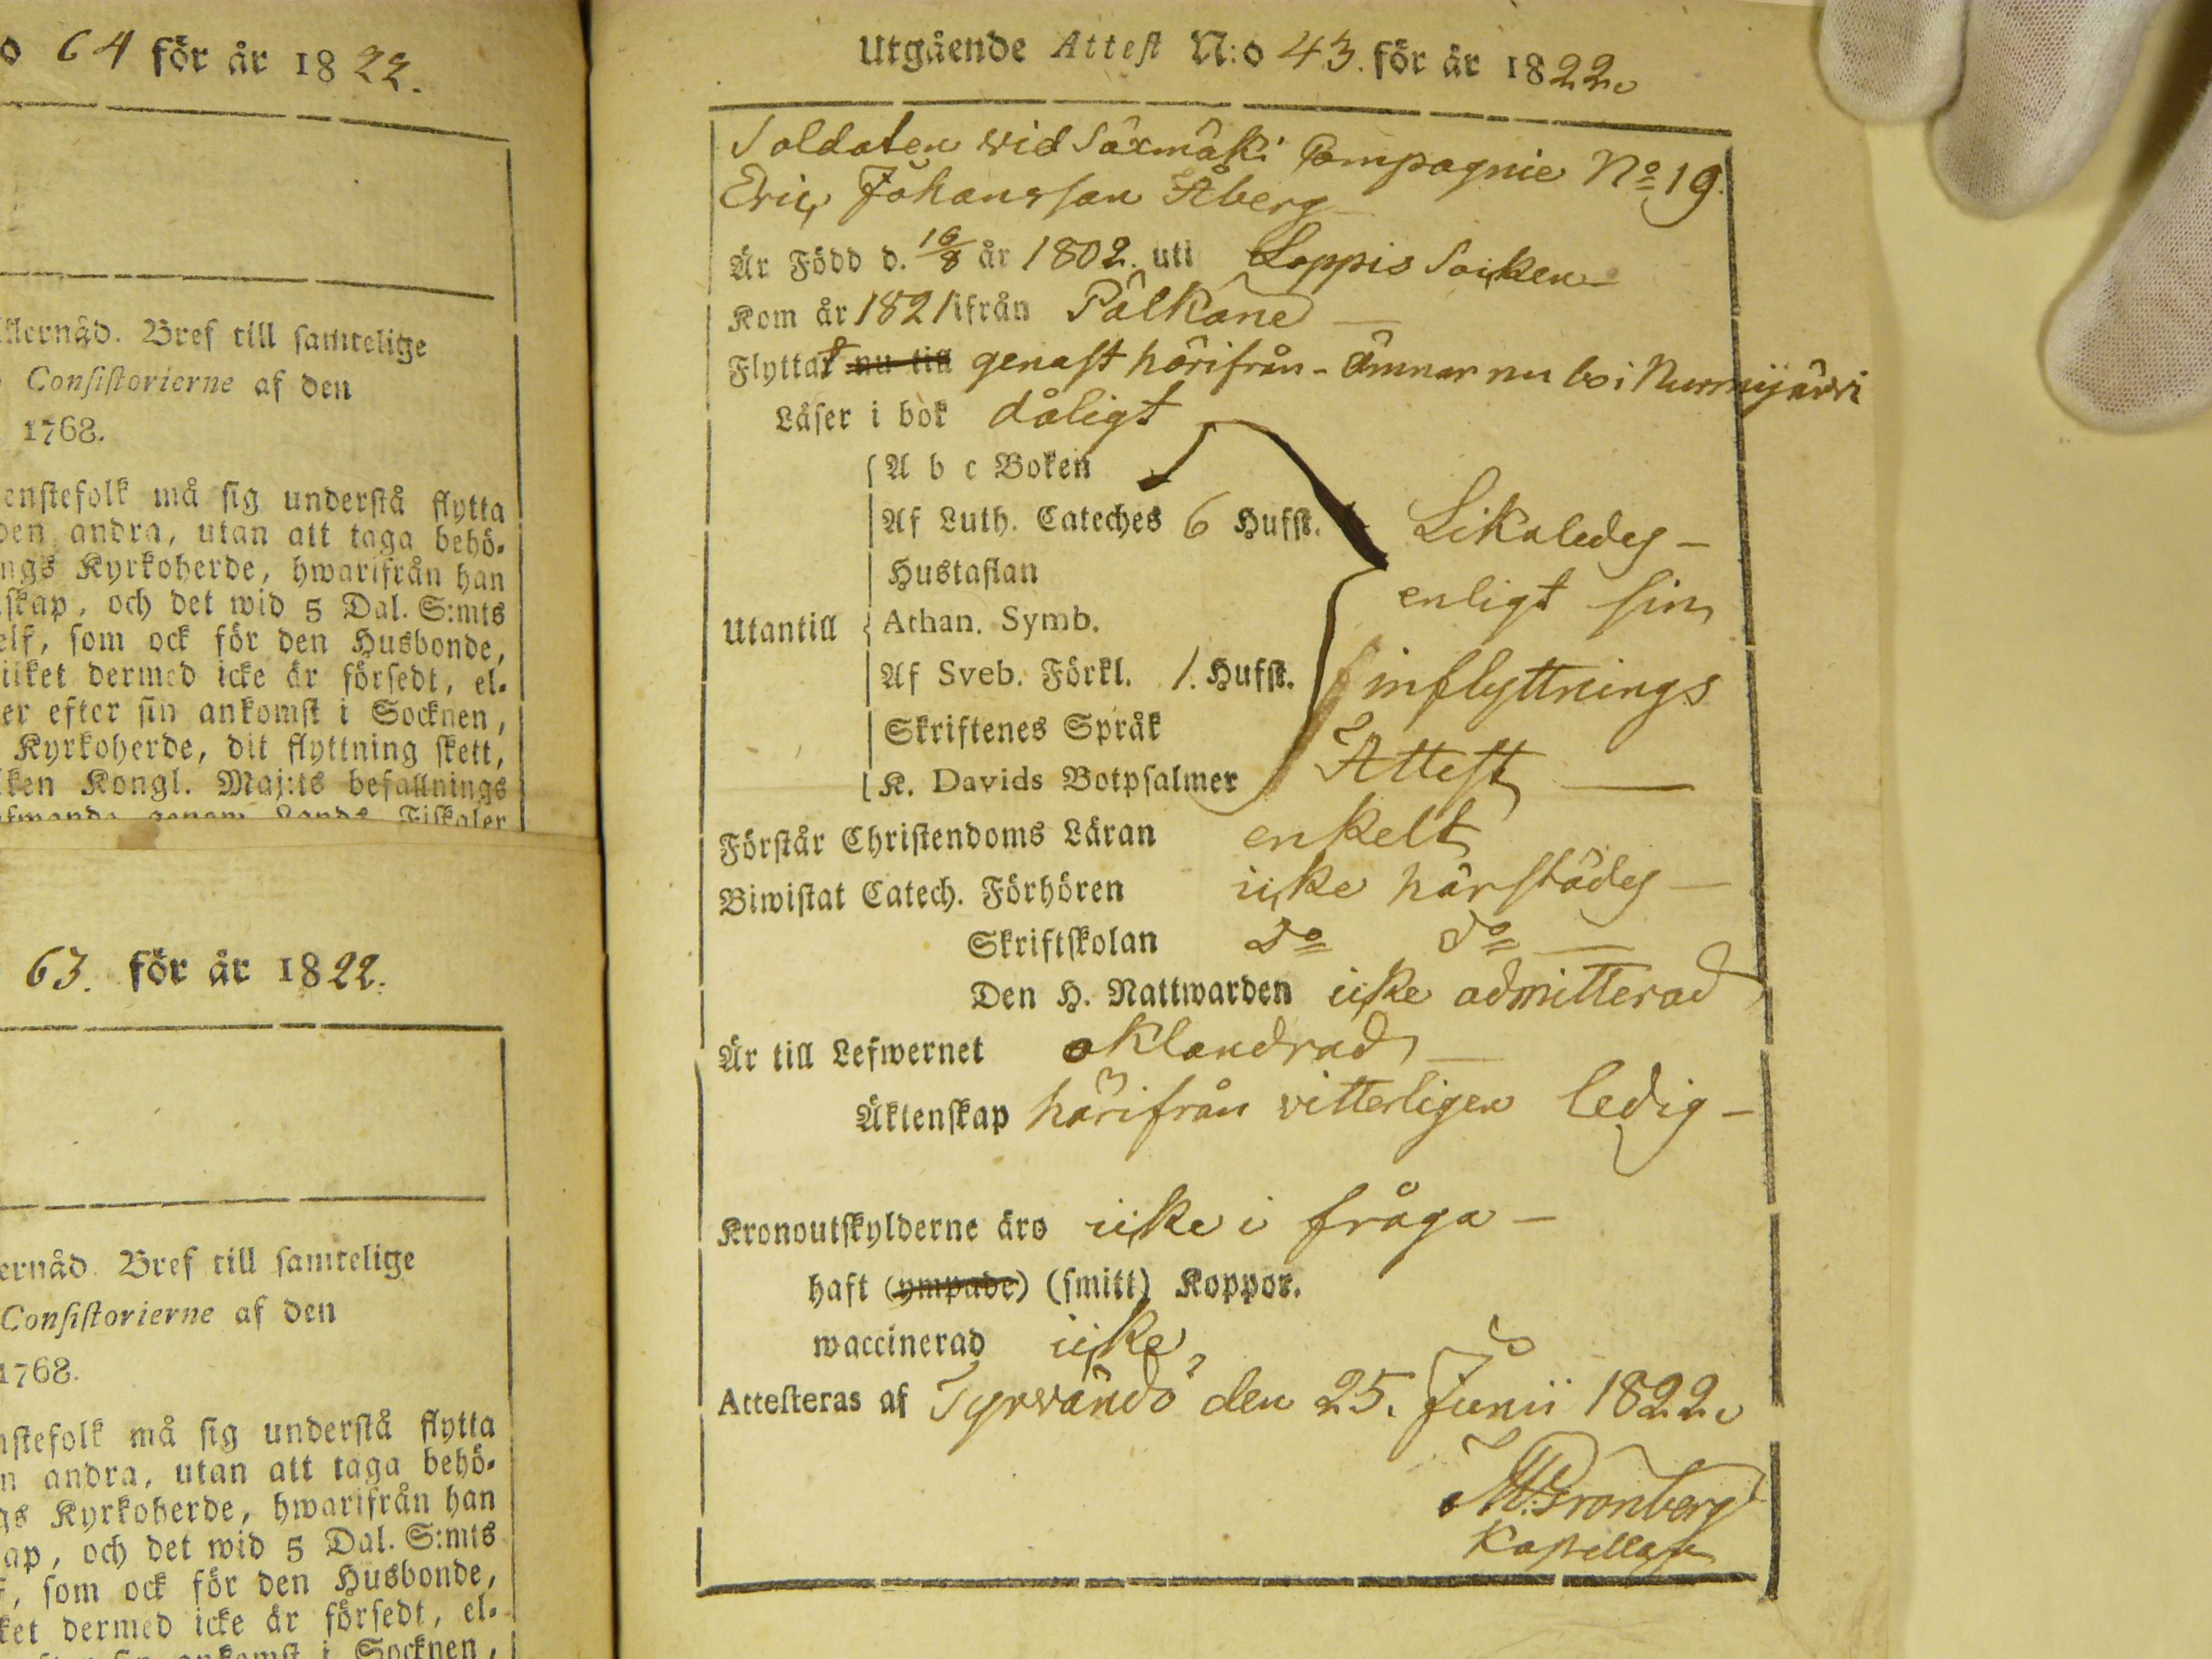 o 64 för år 1822.
Mernåd. Bref till samtelige
Consistorierne af den
1768.
enstefolk må sig understå flytta
den andra, utan att taga behö-
ngs Kyrkoherde, hwarifrån han
skap, och det wid 5 Dal. S:mts
elf, som ock för den Husbonde,
ilket dermed icke är försedt, el-
er efter sin ankomst i Socknen,
Kyrkoherde, dit flyttning skett,
lken Kongl. Maj:ts befallnings
fwande genom Lands Fiskaler
63. för år 1822.
ernåd. Bref till samtelige
Consistorierne af den
1768.
nstefolk må sig understå flytta
n andra, utan att taga behö-
gs Kyrkoherde, hwarifrån han
ap, och det wid 5 Dal. S:mts
f, som ock för den Husbonde,
ket dermed icke är försedt, el-
ankomst i Socknen,
Utgående Attest N:o 43. för år 1822.
Soldaten vid Säxmäki Compagnie No 19.
Eric Johansson Åberg
Är Född d. 16/8 år 1802. uti Loppis Socken
Kom år 1821 ifrån Pälkäne —
Flyttat nu till genast härifrån - ämnar nu bo i Nurmijärvi
Läser i bok dåligt
A b c Boken
Af Luth. Cateches 6 Hufst. Likaledes —
Hustaflan enligt sin
Utantill Athan. Symb.
Af Sveb. Förkl. 1. Hufst. inflyttnings
Skriftenes Språk
K. Davids Botpsalmer Attest —
Förstår Christendoms Läran enkelt
Biwistat Catech. Förhören icke härstädes —
Skriftskolan Do do —
Den H. Nattwarden icke admitterad
Är till Lefwernet oklandrad —
Äktenskap härifrån vitterligen ledig —
Kronoutskylderne äro icke i fråga —
haft (ympade) (smitt) Koppor.
waccinerad icke
Attesteras af Tyrvändö den 25. Junii 1822.
M. Grönberg
Kapellan